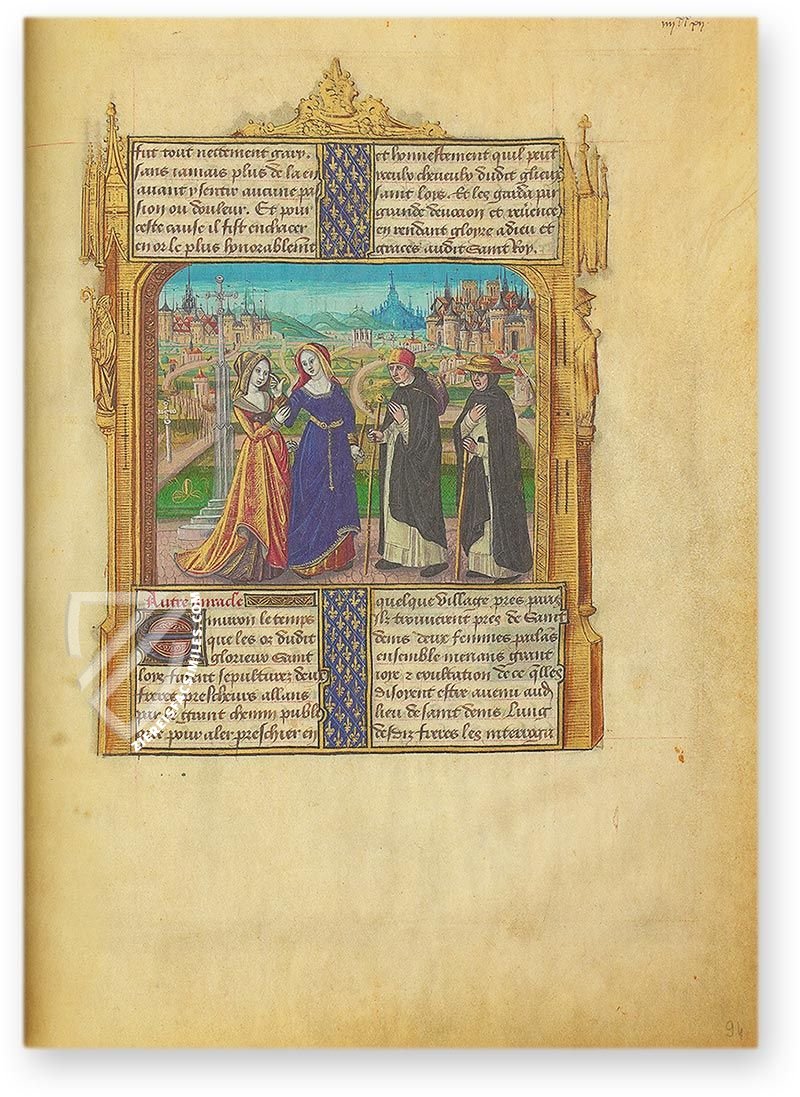 iiij^xx xij.
fut tout nectement gary.
sans iamais plus de la en
auant y sentir aucune pas
sion ou douleur. Et pour
ceste cause il fist enchacer
en or le plus honorablemt
et honnestement quil peut
yceulx cheveulx dudit glieux
saint loys. Et les garda par
grande deuocion et reuerece
en rendant gloyre a dieu et
graces audit Saint Roy.
Autre miracle
Enuiron le temps
que les oz dudit
glorieux Saint
loys furent sepulturez deux
freres prescheurs allans
par le grant chemin publi
que pour aler preschier en
quelque village pres paris
Ilz trouuerent pres de Saint
denis deux femmes parlas
ensemble menans grant
ioye & exultation de ce qlles
disoyent estre auenu aud
lieu de saint denis Lung
desdiz freres les interroga
94